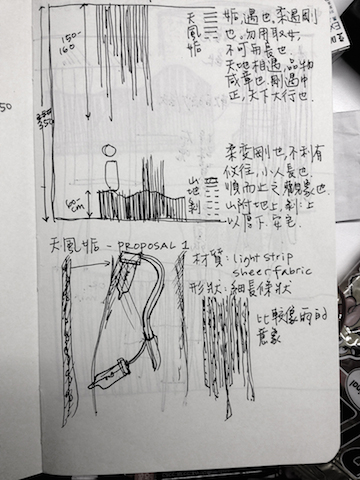 150-
160
350
60
cm
50
天
風
姤
姤,遇也,柔遇剛
也。勿用取女,
不可用長也.
天地相遇,品物
咸章也.剛遇中
正,天下大行也.
山
地
剝
柔变剛也,不利有
攸往,小人長也.
順而止之 觀象也.
山附地上,剝;上
以厚下安宅.
天風姤 - PROPOSAL 1
材質:light strip
sheer fabric
形狀:細長條狀
比較像雨的
意象